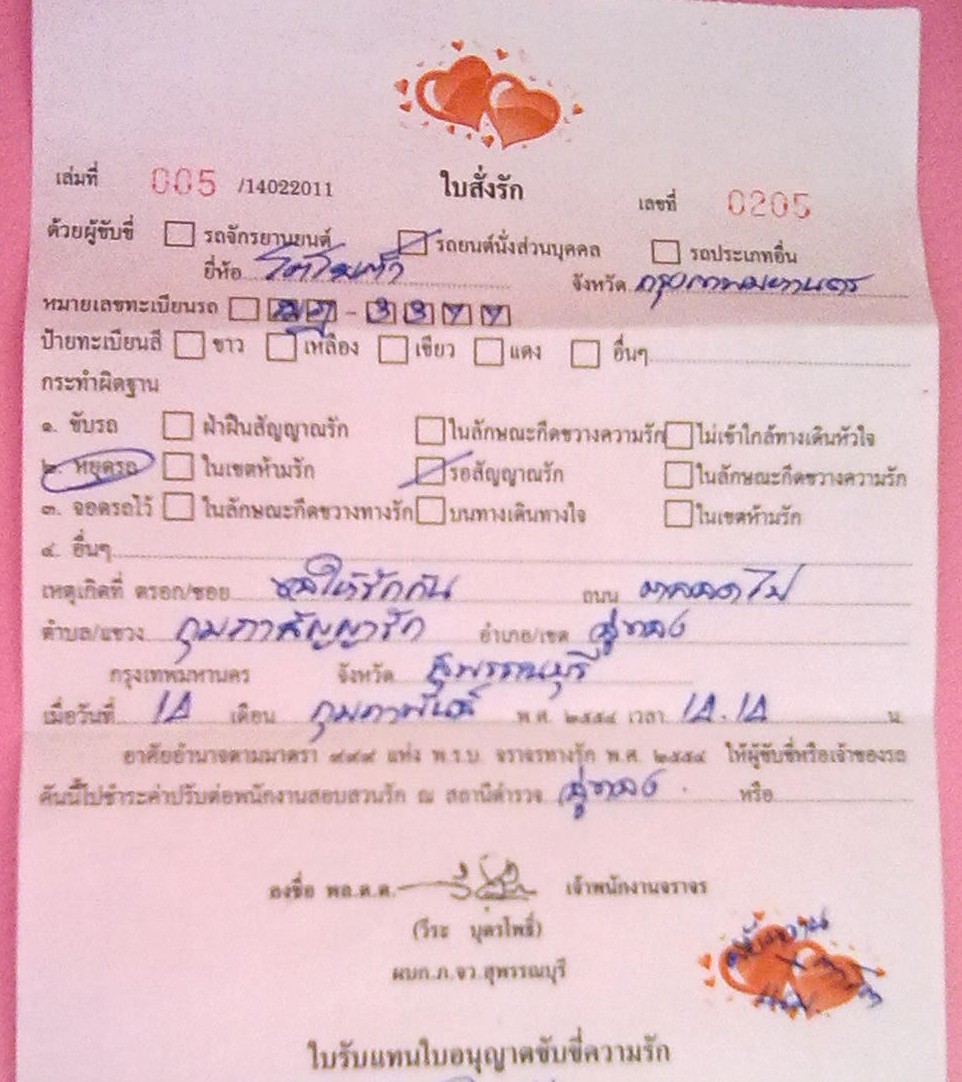 เล่มที่ 005 /14022011 ใบสั่งรัก เลขที่ 0205
ด้วยผู้ขับขี่ รถจักรยานยนต์ รถยนต์นั่งส่วนบุคคล รถประเภทอื่น
ยี่ห้อ จังหวัด กรุงเทพมหานคร
หมายเลขทะเบียนรถ
ป้ายทะเบียนสี ขาว เหลือง เขียว แดง อื่นๆ
กระทำผิดฐาน
๑. ขับรถ ฝ่าฝืนสัญญาณรัก ในลักษณะกีดขวางความรัก ไม่เข้าใกล้ทางเดินหัวใจ
๒. หยุดรถ ในเขตห้ามรัก รอสัญญาณรัก ในลักษณะกีดขวางความรัก
๓. จอดรถไว้ ในลักษณะกีดขวางทางรัก บนทางเดินทางใจ ในเขตห้ามรัก
๔. อื่นๆ
เหตุเกิดที่ ตรอก/ซอย ให้รักกัน ถนน มาลัยแมน
ตำบล/แขวง กุมภาสัญญารัก อำเภอ/เขต อู่ทอง
กรุงเทพมหานคร จังหวัด สุพรรณบุรี
เมื่อวันที่ 14 เดือน กุมภาพันธ์ พ.ศ. ๒๕๕๔ เวลา 14.14 น.
อาศัยอำนาจตามมาตรา ๙๙๙ แห่ง พ.ร.บ. จราจรทางรัก พ.ศ. ๒๕๕๔ ให้ผู้ขับขี่หรือเจ้าของรถ
คันนี้ไปชำระค่าปรับต่อพนักงานสอบสวนรัก ณ สถานีตำรวจ อู่ทอง หรือ
ลงชื่อ พล.ต.ต. เจ้าพนักงานจราจร
(วีระ บุตรโพธิ์)
ผบก.ภ.จว.สุพรรณบุรี
ใบรับแทนใบอนุญาตขับขี่ความรัก